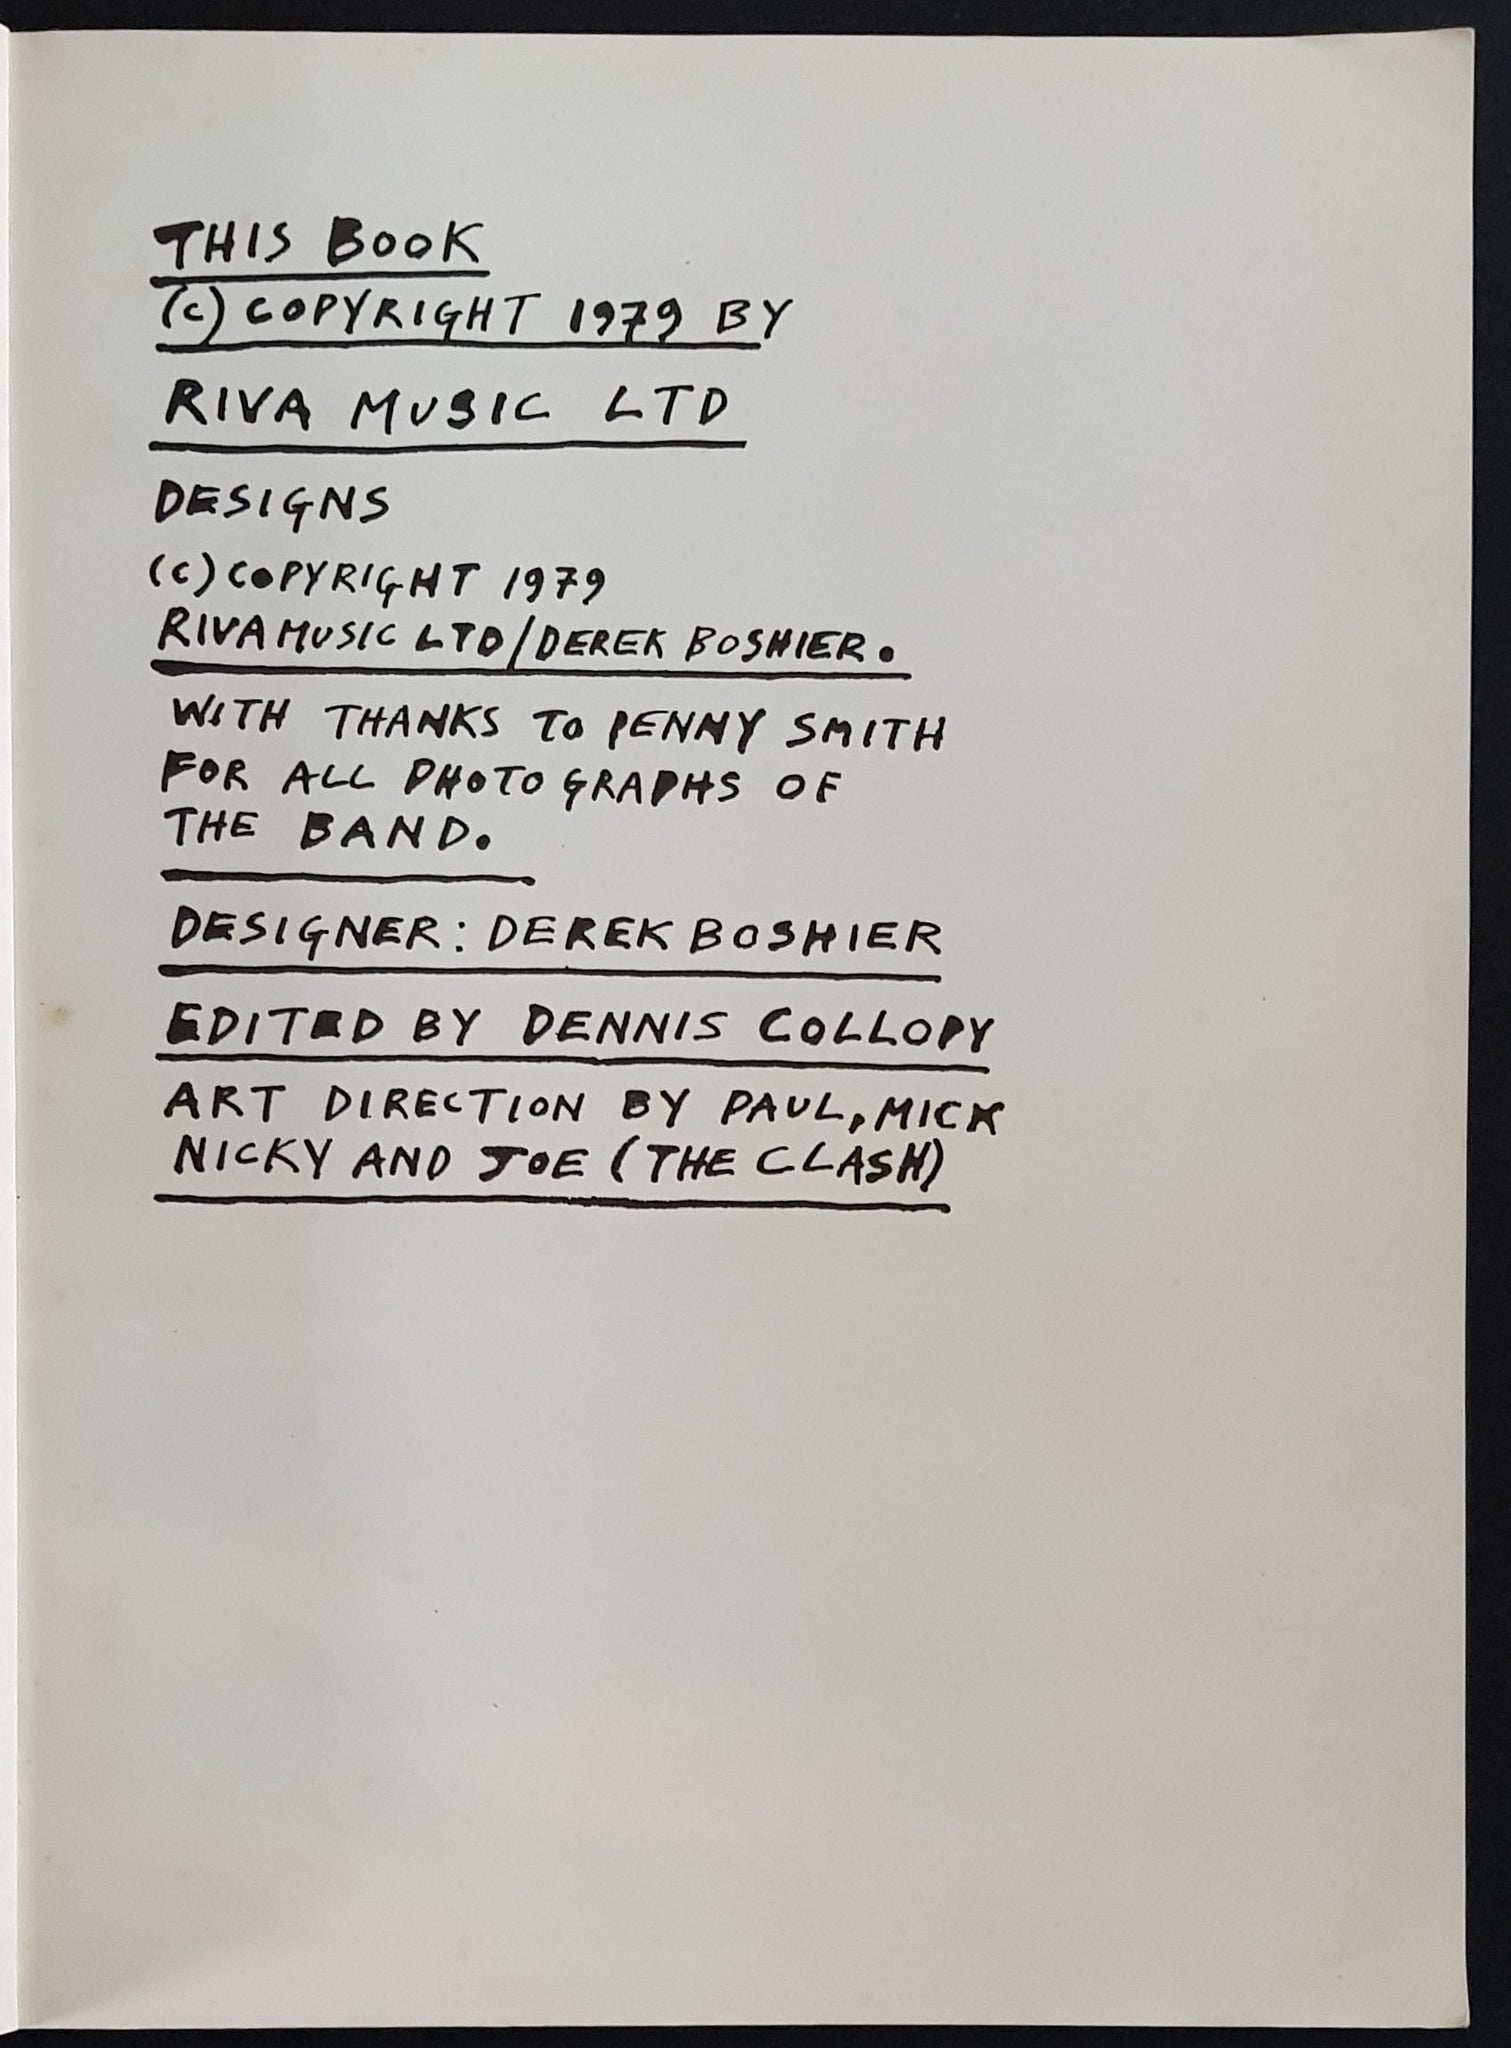 THIS BOOK
(C) COPYRIGHT 1979 BY
RIVA MUSIC LTD
DESIGNS
(C) COPYRIGHT 1979
RIVA MUSIC LTD/DEREK BOSHIER.
WITH THANKS TO PENNY SMITH
FOR ALL PHOTOGRAPHS OF
THE BAND.
DESIGNER: DEREK BOSHIER
EDITED BY DENNIS COLLOPY
ART DIRECTION BY PAUL, MICK
NICKY AND JOE (THE CLASH)